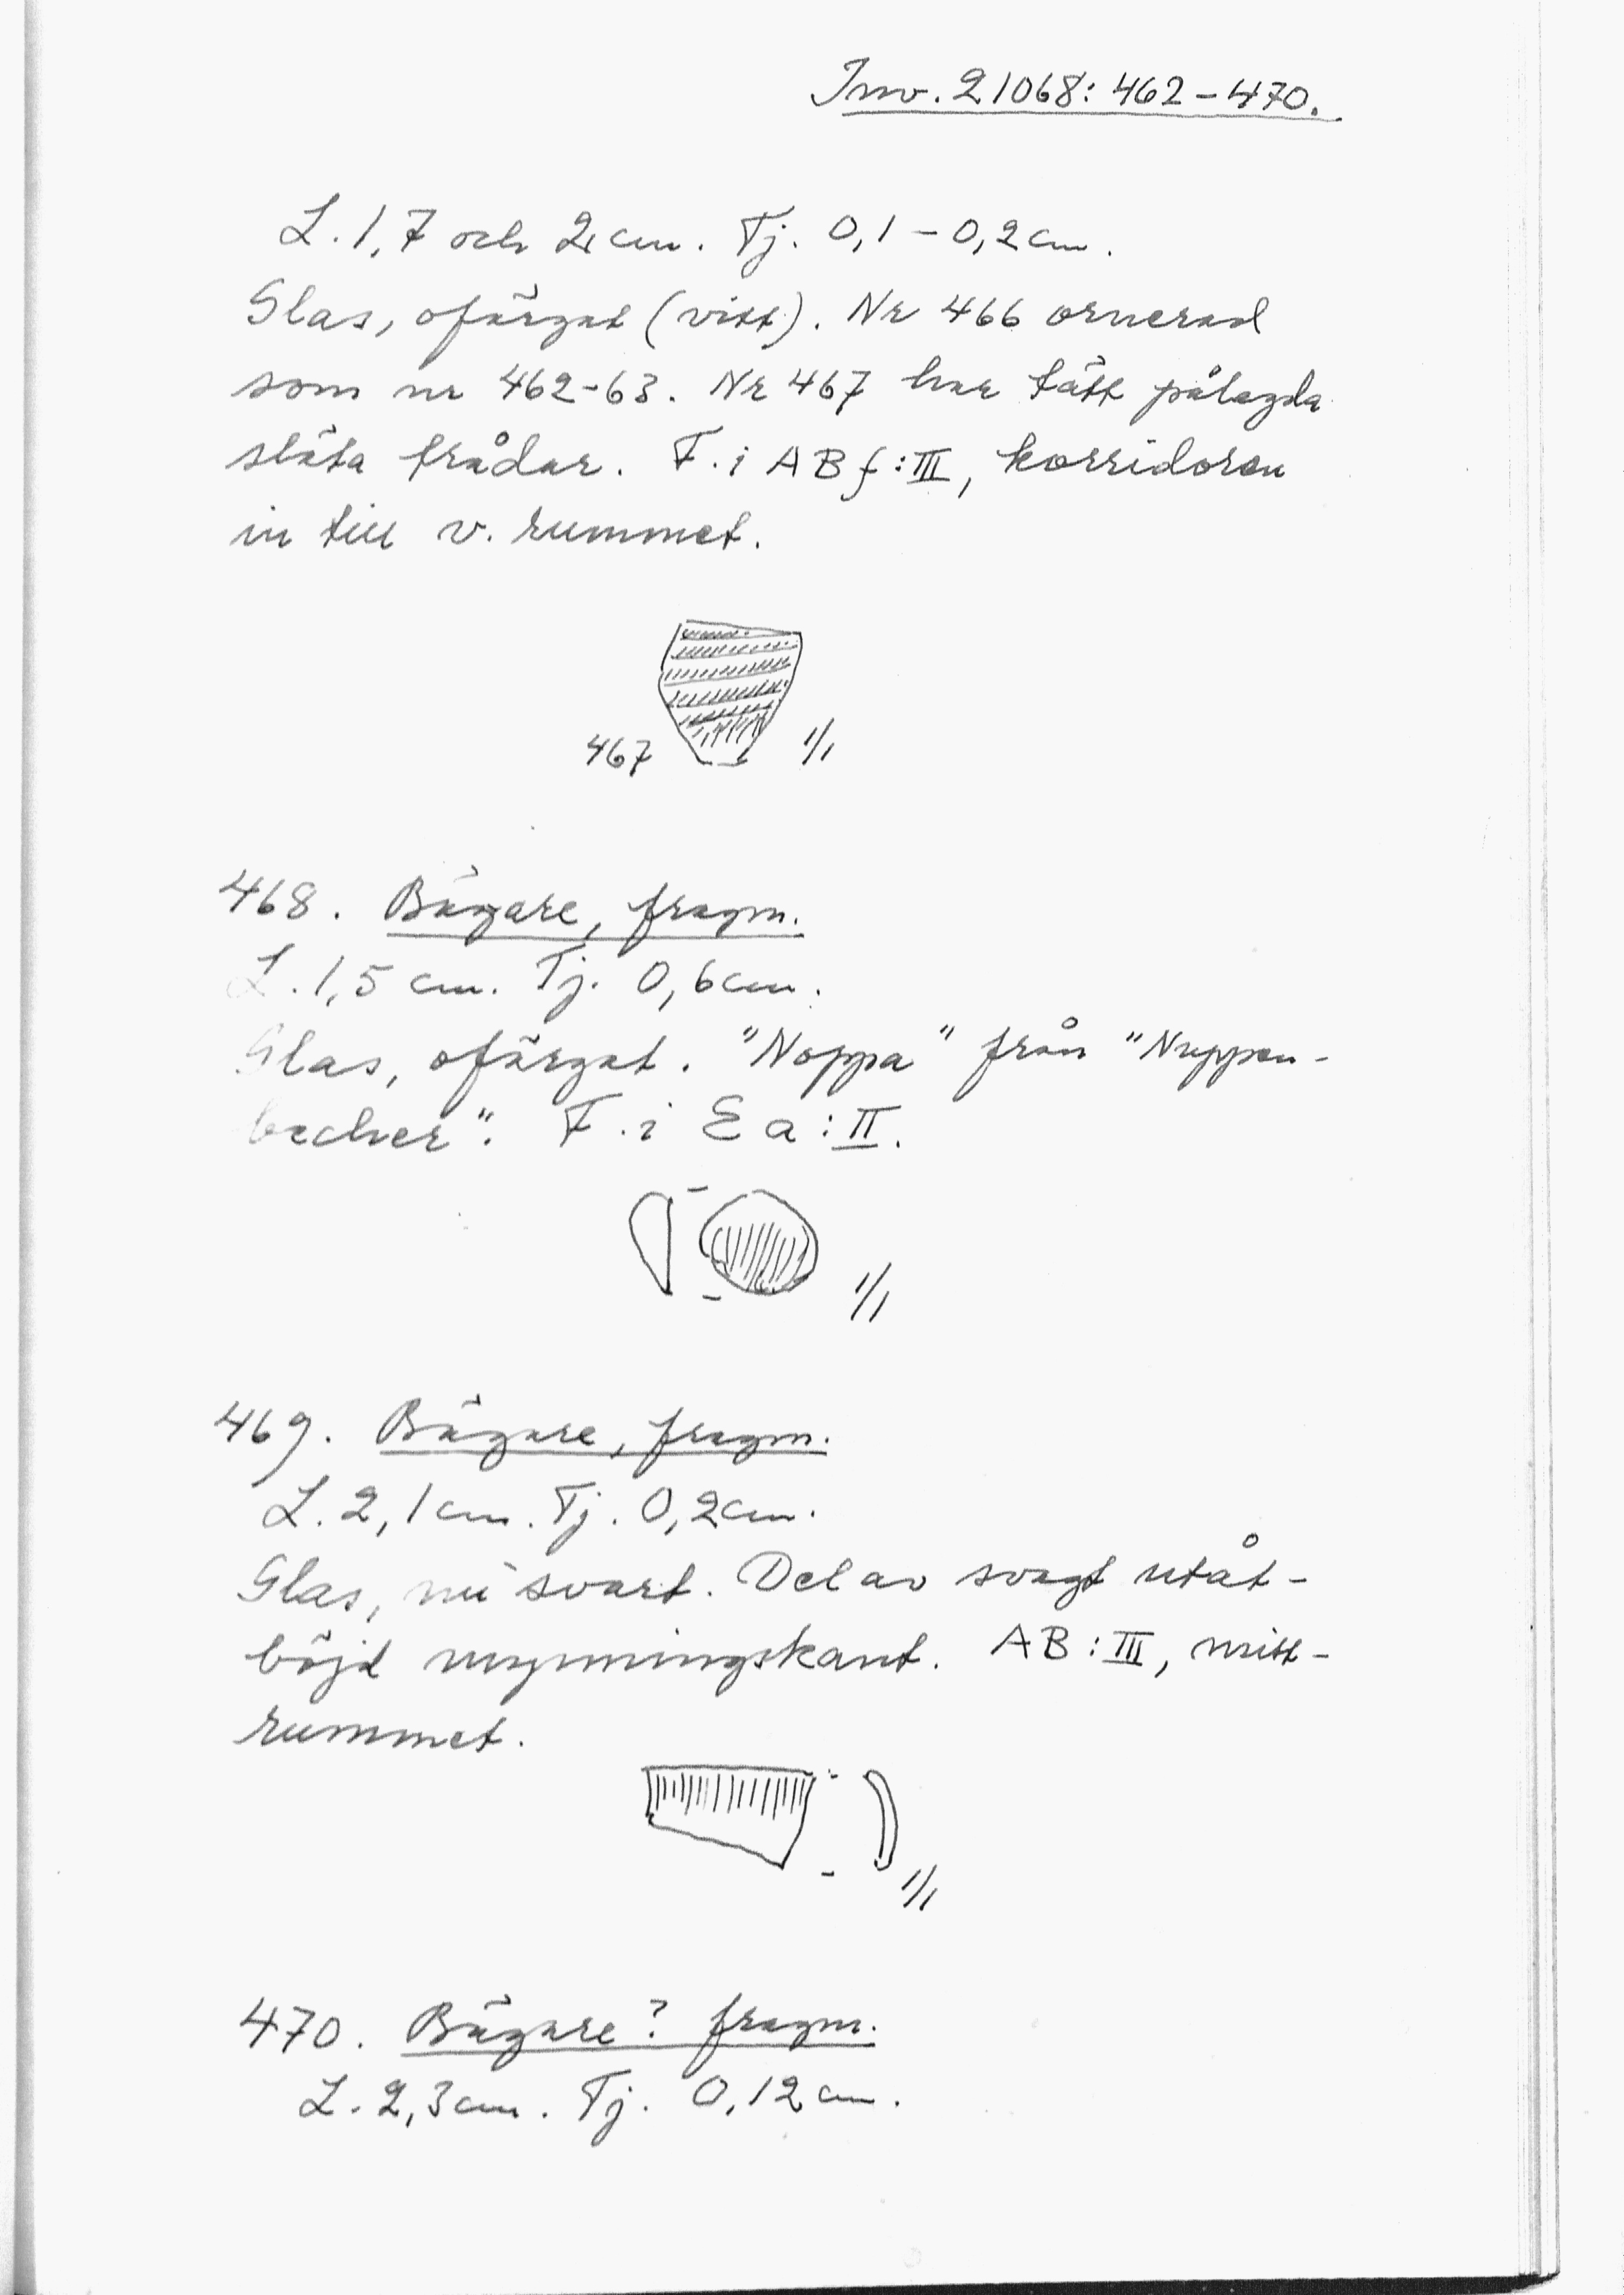 Inv. 21068: 462-470.
L. 1,7 och 2 cm. Tj. 0,1 - 0,2 cm.
Glas, ofärgat (vitt). Nr 466 ornerad
som nr 462-63. Nr 467 har tätt pålagda
släta trådar. F. i ABf:III, korridoren
in till v. rummet.
467 1/1
468. Bägare, fragm.
L. 1,5 cm. Tj. 0,6 cm.
Glas, ofärgat. "Noppa" från "Nuppen-
becher". F. i Ea:II.
1/1
469. Bägare, fragm.
L. 2,1 cm. Tj. 0,2 cm.
Glas, nu svart. Del av svagt utåt-
böjd mynningskant. AB:III, mitt-
rummet.
1/1
470. Bägare? fragm.
L. 2,3 cm. Tj. 0,12 cm.